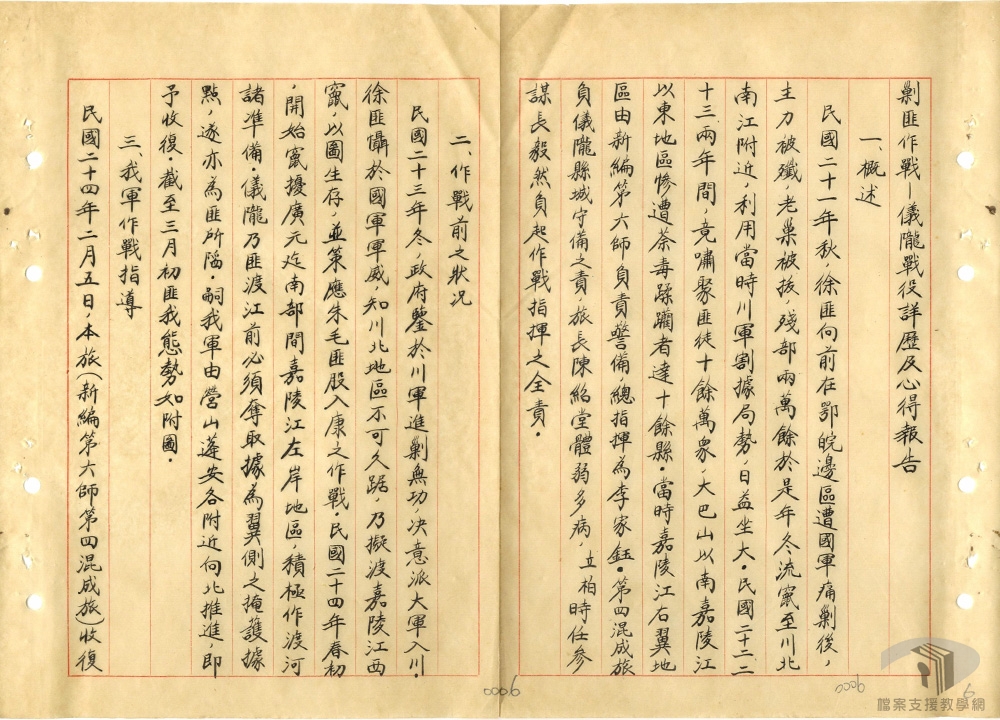 剿匪作戰、儀隴戰役詳歷及心得報告
一、概述
民國二十一年秋、徐匪向前在鄂皖邊區遭國軍痛剿後，
主力被殲，老巢被拔，殘部兩萬餘於是年冬流竄至川北
南江附近，利用當時川軍割據局勢，日益坐大。民國二十二
十三兩年間，竟嘯聚匪徒十餘萬衆，大巴山以南嘉陵江
以東地區慘遭荼毒蹂躝者達十餘縣。當時嘉陵江右翼地
區由新編第六師負責警備，總指揮為李家鈺。第四混成旅
負儀隴縣城守備之責，旅長陳紹堂體弱多病，立柏時任參
謀長毅然負起作戰指揮之全責。
二、作戰前之狀况
民國二十三年冬，政府鑒於川軍進剿無功，决意派大軍入川。
徐匪懾於國軍軍威，知川北地區不可久踞，乃擬渡嘉陵江西
竄，以圖生存，並策應朱毛匪股入康之作戰。民國二十四年春初
，開始竄擾廣元迄南部間嘉陵江左岸地區，積極作渡河
諸准備。儀隴乃匪渡江前必須奪取據為翼側之掩護據
點，遂亦為匪所陷。嗣我軍由營山蓬安各附近向北推進，即
予收復。截至三月初匪我態勢如附圖。
三、我軍作戰指導
民國二十四年二月五日，本旅（新編第六師第四混成旅）收復
0006
0006
6
檔案支援教學網